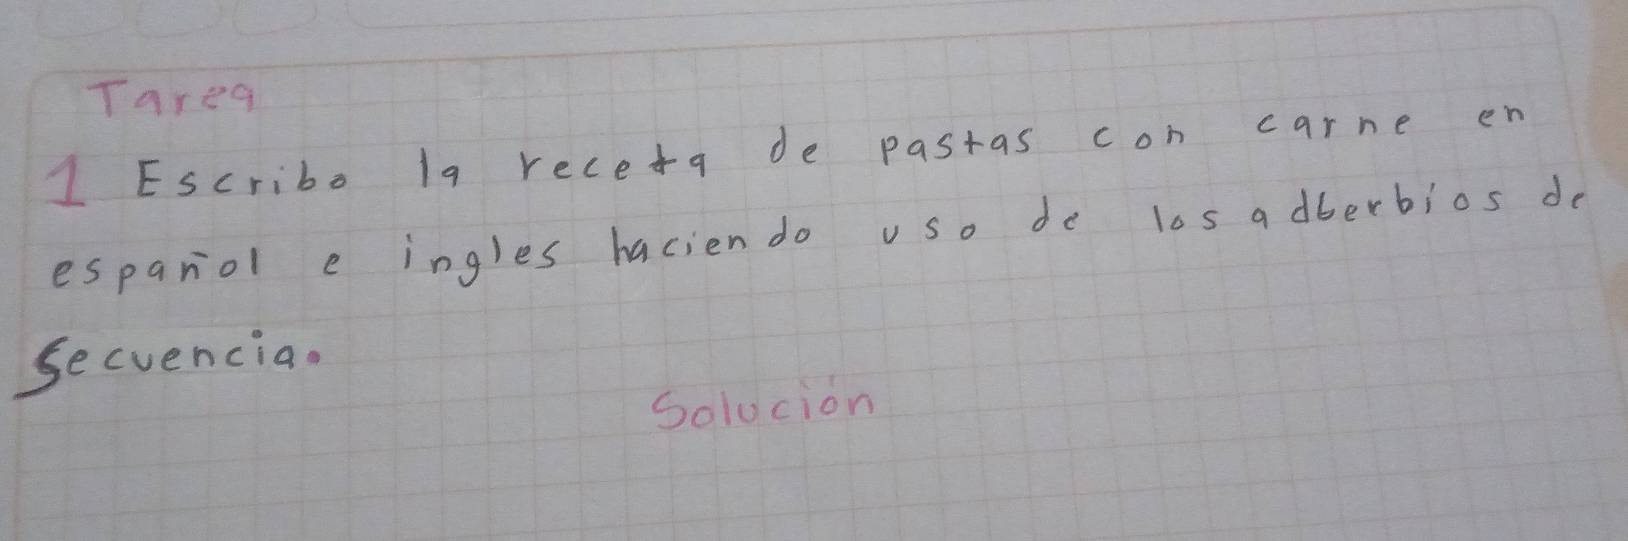 Tarea
1 Escribo la receta de pastas con carne en
español e ingles haciendo uso de los adberbios de
secuencia.
Solución